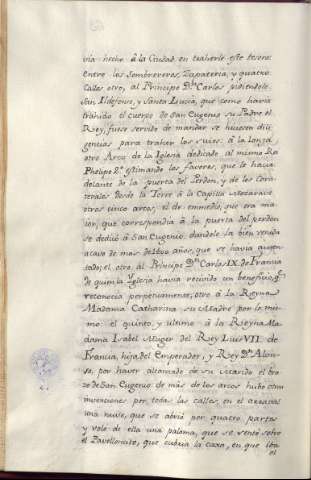 via hecho â la Ciudad en traherle este tesoro:
entre los Sombrereros, Zapateria, y quatro
calles otro, al Principe Dn. Carlos pidiendole
San Ildefonso, y Santa Lucia, que como havia
trahido el cuerpo de San Eugenio su Padre el
Rey, fuese servido de mandar se hiciesen dili
gencias para traher los suios: â la lonja
otro Arco de la Iglesia dedicado al mismo Rey
Phelipe 2º estimando los favores, que le hacia
delante de la puerta del Perdon, y de los Cora
terales desde la Torre â la Capilla Mozarave
otros cinco arcos, el de enmedio, que era ma
ior, que correspondia â la puerta del perdon
se dedicó â San Eugenio, dandole la bien venida
acavo de mas de 1600 años, que se havia ausen
tado; el otro, al Principe Dn. Carlos IX. de Francia
de quien la Iglesia havia recivido un beneficio, q.
reconocia perpetuamente, otro â la Reyna
Madama Catharina su Madre por lo mis
mo: el quinto, y ultimo â la Reyna Ma
dama Isabel Muger del Rey Luis VII de
Francia, hija del Emperador, y Rey Dn. Alon
so, por haver alcanzado de su Marido el bra
zo de San Eugenio de más de los arcos hubo otras
invenciones por todas las calles, en el
una nuve, que se abrió por quatro partes
y voló de ella una paloma, que se sentó sobre
el Pavelloncito, que cubria la caxa, en que iba
el